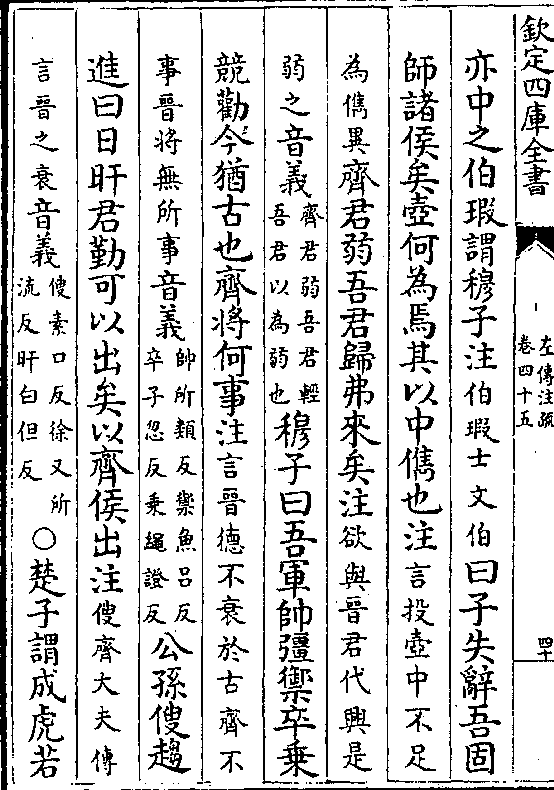 欽定四庫全書
左傳注疏
卷四十五
四十
亦中之伯瑕謂穆子注伯瑕士文伯曰子失辭吾固
師諸侯矣壺何為焉其以中儁也注言投壺中不足
為儁異齊君弱吾君歸弗來矣注欲與晉君代興是
弱之音義齊君弱吾君輕吾君以為弱也穆子曰吾軍帥彊禦卒乗
競勸今猶古也齊將何事注言晉德不衰於古齊不
事晉將無所事音義帥所類反禦魚吕反卒子忽反乗繩證反公孫傁趨
進曰日旰君勤可以出矣以齊侯出注傁齊大夫傳
言晉之衰音義傁素口反徐又所流反旰白但反○楚子謂成虎若